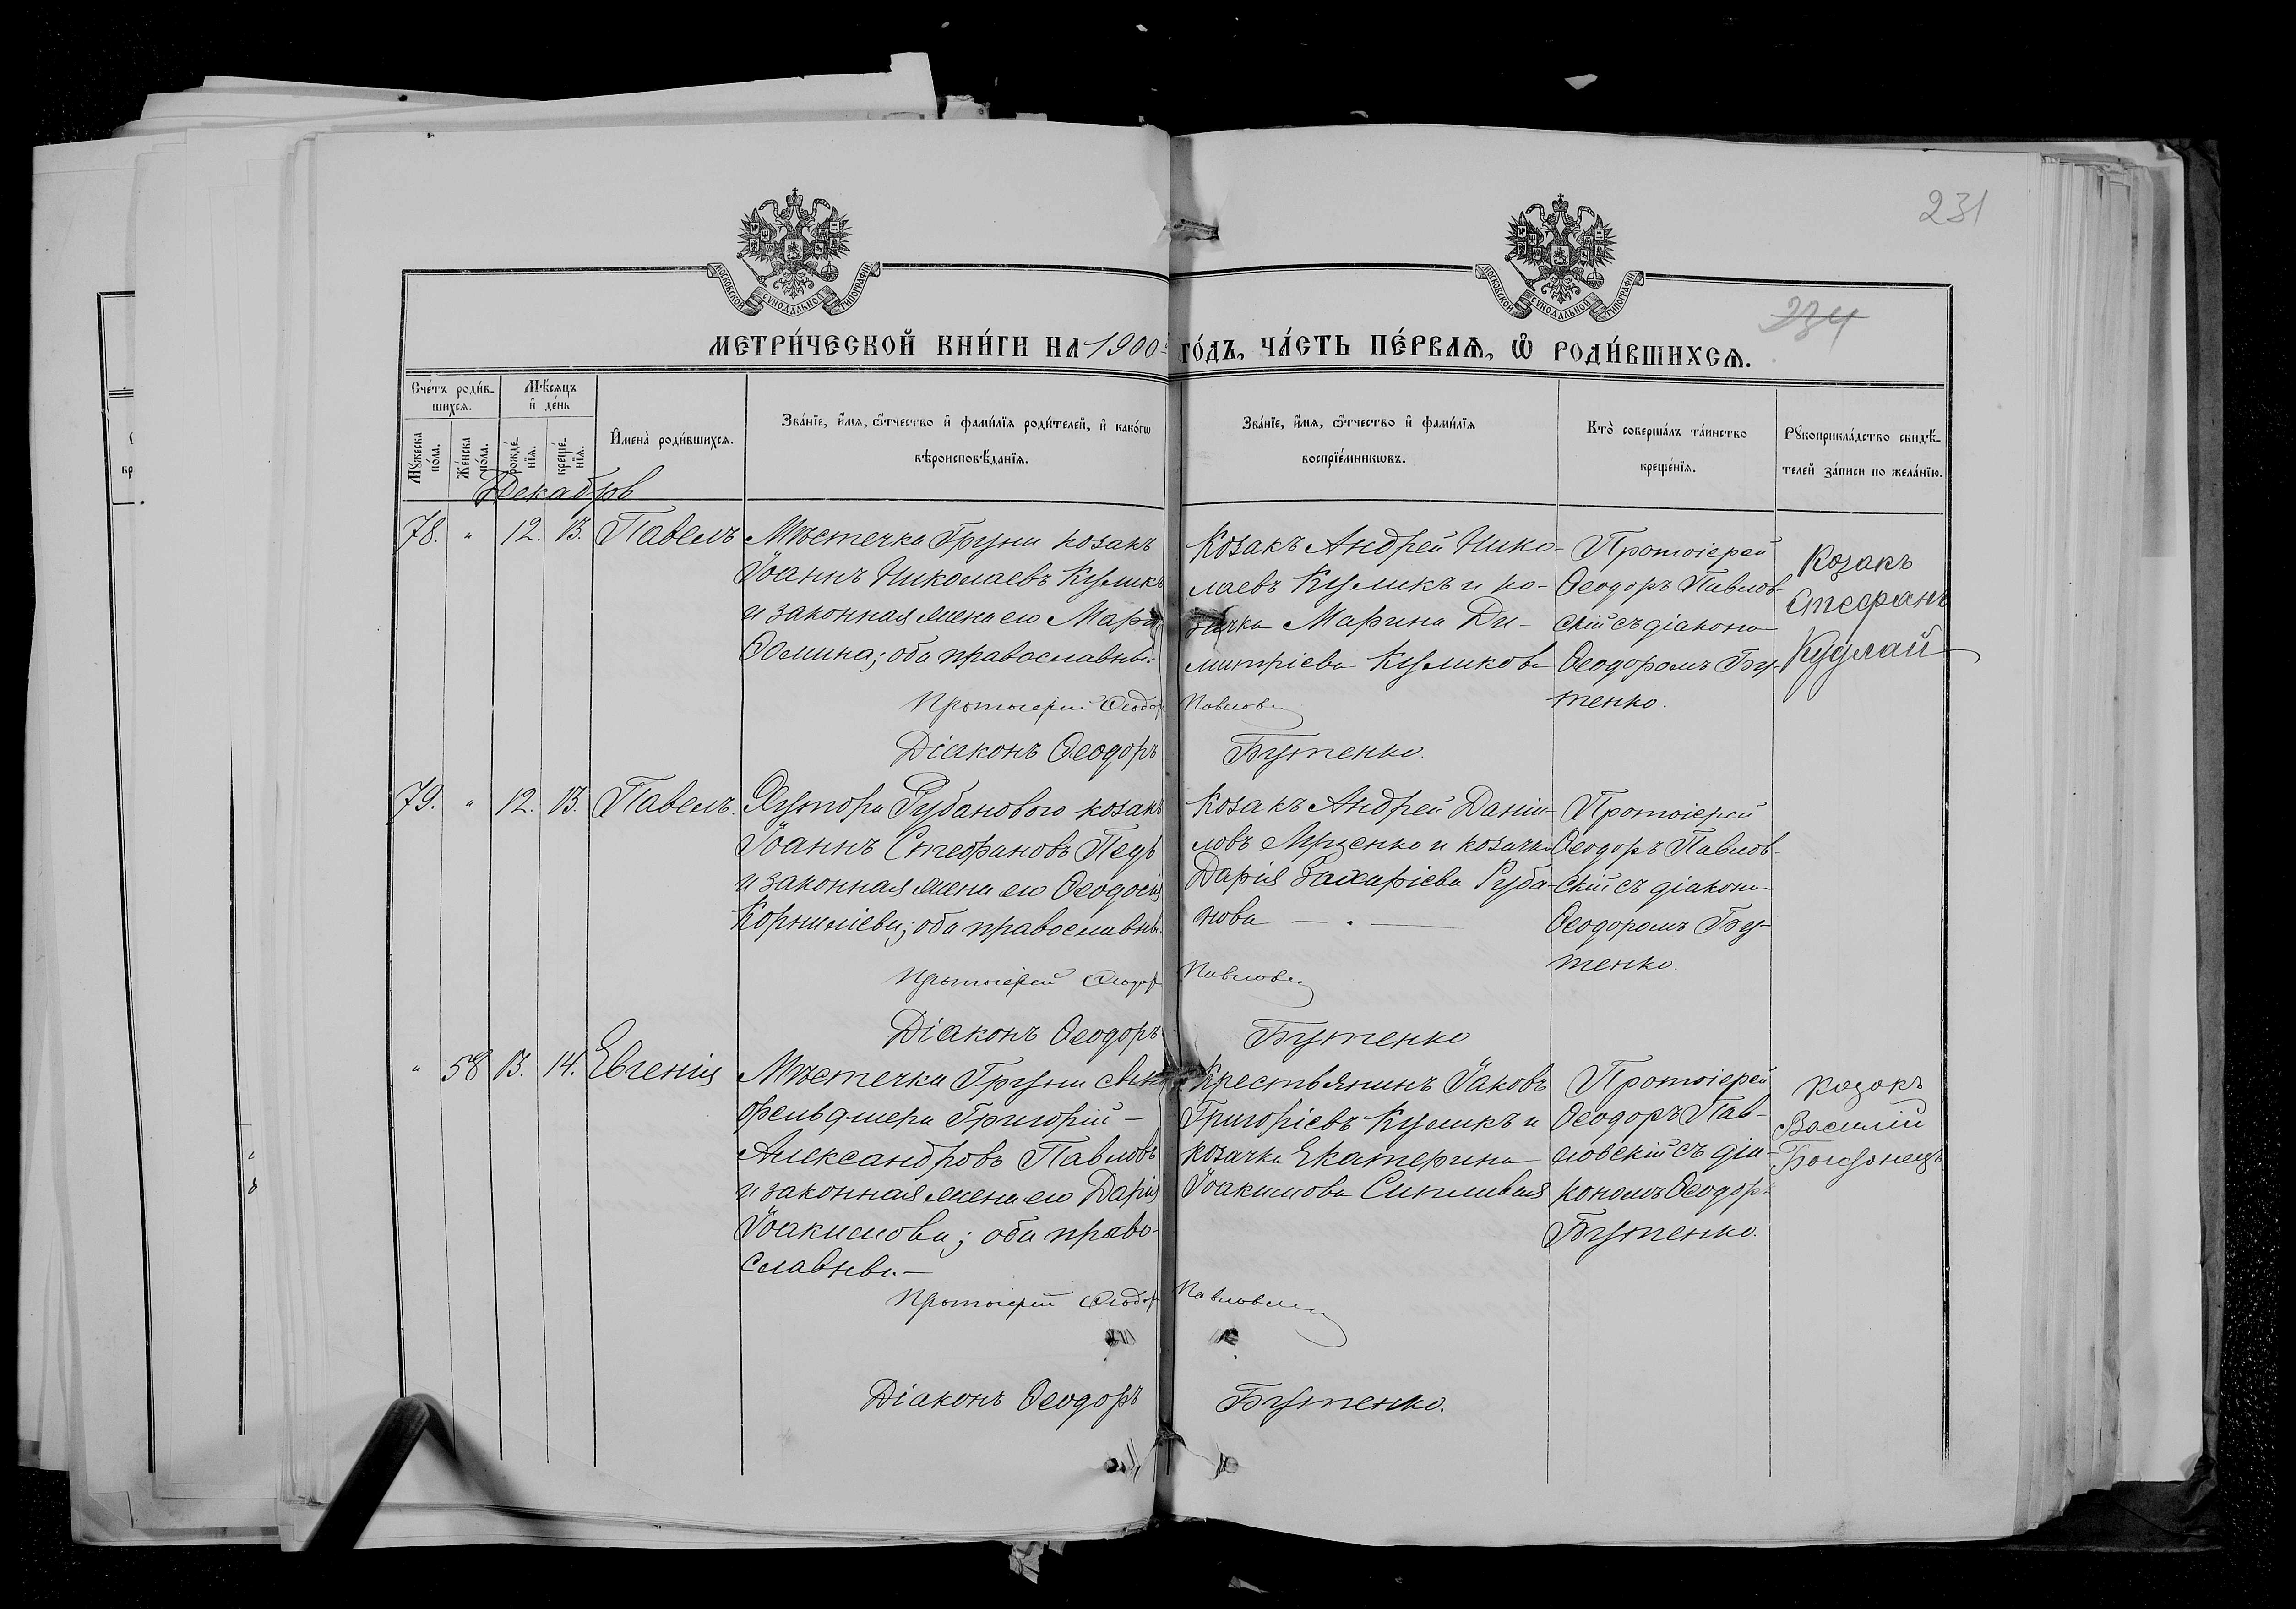 231
234
МОСКОВСКОЙ СѴНОДАЛЬНОЙ ТИПОГРАФІИ
МОСКОВСКОЙ СѴНОДАЛЬНОЙ ТИПОГРАФІИ
МЕТРИ́ЧЕСКОЙ КНИ́ГИ НА 1900 ГО́ДЪ, ЧА́СТЬ ПЕ́РВАЯ, Ѡ҆ РОДИ́ВШИХСЯ.
Сче́тъ роди́в-
шихся.
Мѣ́сяцъ
и҆ де́нь
Мꙋ́жеска
по́ла.
Же́нска
по́ла.
рожде́-
нїя.
креще́-
нїя.
И҆мена̀ роди́вшихся.
Зва́нїе, и҆́мя, ѻ҆́тчество и҆ фами́лїя роди́телей, и҆ како́гѡ
вѣроисповѣ́данїя.
Зва́нїе, и҆́мя, ѻ҆́тчество и҆ фами́лїя
воспрїе́мникѡвъ.
Кто̀ соверша́лъ та́инство
креще́нїя.
Рꙋкоприкла́дство свидѣ́-
телей за́писи по жела́нїю.
Декабрь
78. " 12. 13. Павелъ
Мѣстечка Груни козакъ
Іоаннъ Николаевъ Куликъ
и законная жена его
Ѳомина; оба православны.
Козакъ Андрей Нико-
лаевъ Куликъ и ко-
зачка Марина Ди-
митріева Куликова
Протоіерей
Ѳеодоръ Павлов-
скій съ діакономъ
Ѳеодоромъ Бу-
тенко.
Козакъ
Стефанъ
Кудлай
Протоіерей Ѳеодоръ
Діаконъ Ѳеодоръ Бутенко.
79. " 12. 13. Павелъ.
Хутора Рубанового козакъ
Іоаннъ Стефановъ Педь
и законная жена его Ѳеодосія
Корниліева; оба православны.
Козакъ Андрей Даніи-
ловъ и козачка
Дарія Захаріева Руба-
нова
Протоіерей
Ѳеодоръ Павлов-
скій съ діакономъ
Ѳеодоромъ Бу-
тенко.
Протоіерей Ѳеодоръ
Діаконъ Ѳеодоръ Бутенко
" 58 13. 14. Евгенія
Мѣстечка Груни сынъ
фельдшера Григорій
Александровъ Павловъ
и законная жена его Дарія
Іоакимова; оба право-
славны.
Крестьянинъ Іаковъ
Григоріевъ Куликъ и
козачка Екатерина
Іоакимова
Протоіерей
Ѳеодоръ Пав-
ловскій съ діа-
кономъ Ѳеодоръ
Бутенко.
Козакъ
Василій
Протоіерей Ѳеодоръ
Діаконъ Ѳеодоръ Бутенко.